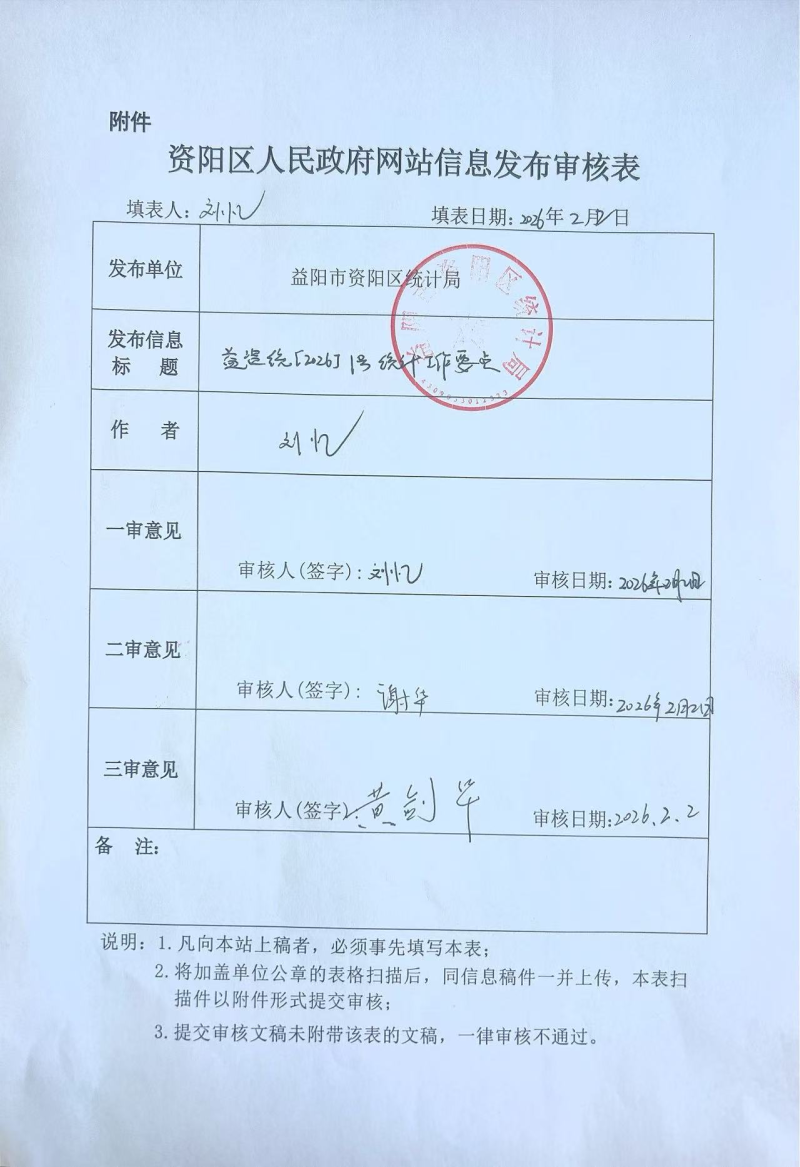 附件
资阳区人民政府网站信息发布审核表
填表人：刘忆
填表日期：2026年2月2日
发布单位
益阳市资阳区统计局
发布信息
标 题
益资统[2026]1号统计工作要点
作 者
刘忆
一审意见
审核人(签字)：刘忆
审核日期：2026年2月2日
二审意见
审核人(签字)：谢华
审核日期：2026年2月2日
三审意见
审核人(签字)：黄剑华
审核日期：2026.2.2
备 注：
说明：1.凡向本站上稿者，必须事先填写本表；
2.将加盖单位公章的表格扫描后，同信息稿件一并上传，本表扫
描件以附件形式提交审核；
3.提交审核文稿未附带该表的文稿，一律审核不通过。
益阳市资阳区统计局